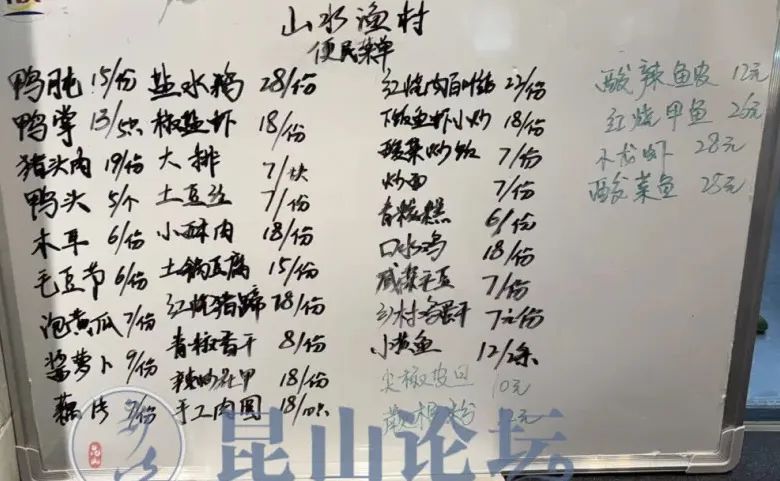 山水渔村
便民菜单
鸭肫 15/份
鸭掌 13/5只
猪头肉 19/份
鸭头 5/个
木耳 6/份
毛豆节 6/份
泡黄瓜 7/份
酱萝卜 9/份
藕片 /份
盐水鹅 28/份
椒盐虾 18/份
大排 7/块
土豆丝 7/份
小酥肉 18/份
土锅豆腐 15/份
红烧猪蹄 28/份
青椒香干 8/份
辣炒花甲 18/份
手工肉圆 18/
红烧肉百叶结 22/份
下饭鱼虾小炒 18/份
酸菜炒饭 7/份
炒面 7/份
糕 6/份
口水鸡 18/份
咸菜毛豆 7/份
乡村干 7元/份
小黄鱼 12/2条
尖椒皮 10元
粉 元
酸辣鱼皮 12元
红烧甲鱼 26元
小龙虾 28元
酸菜鱼 25元
昆山论坛
昆山